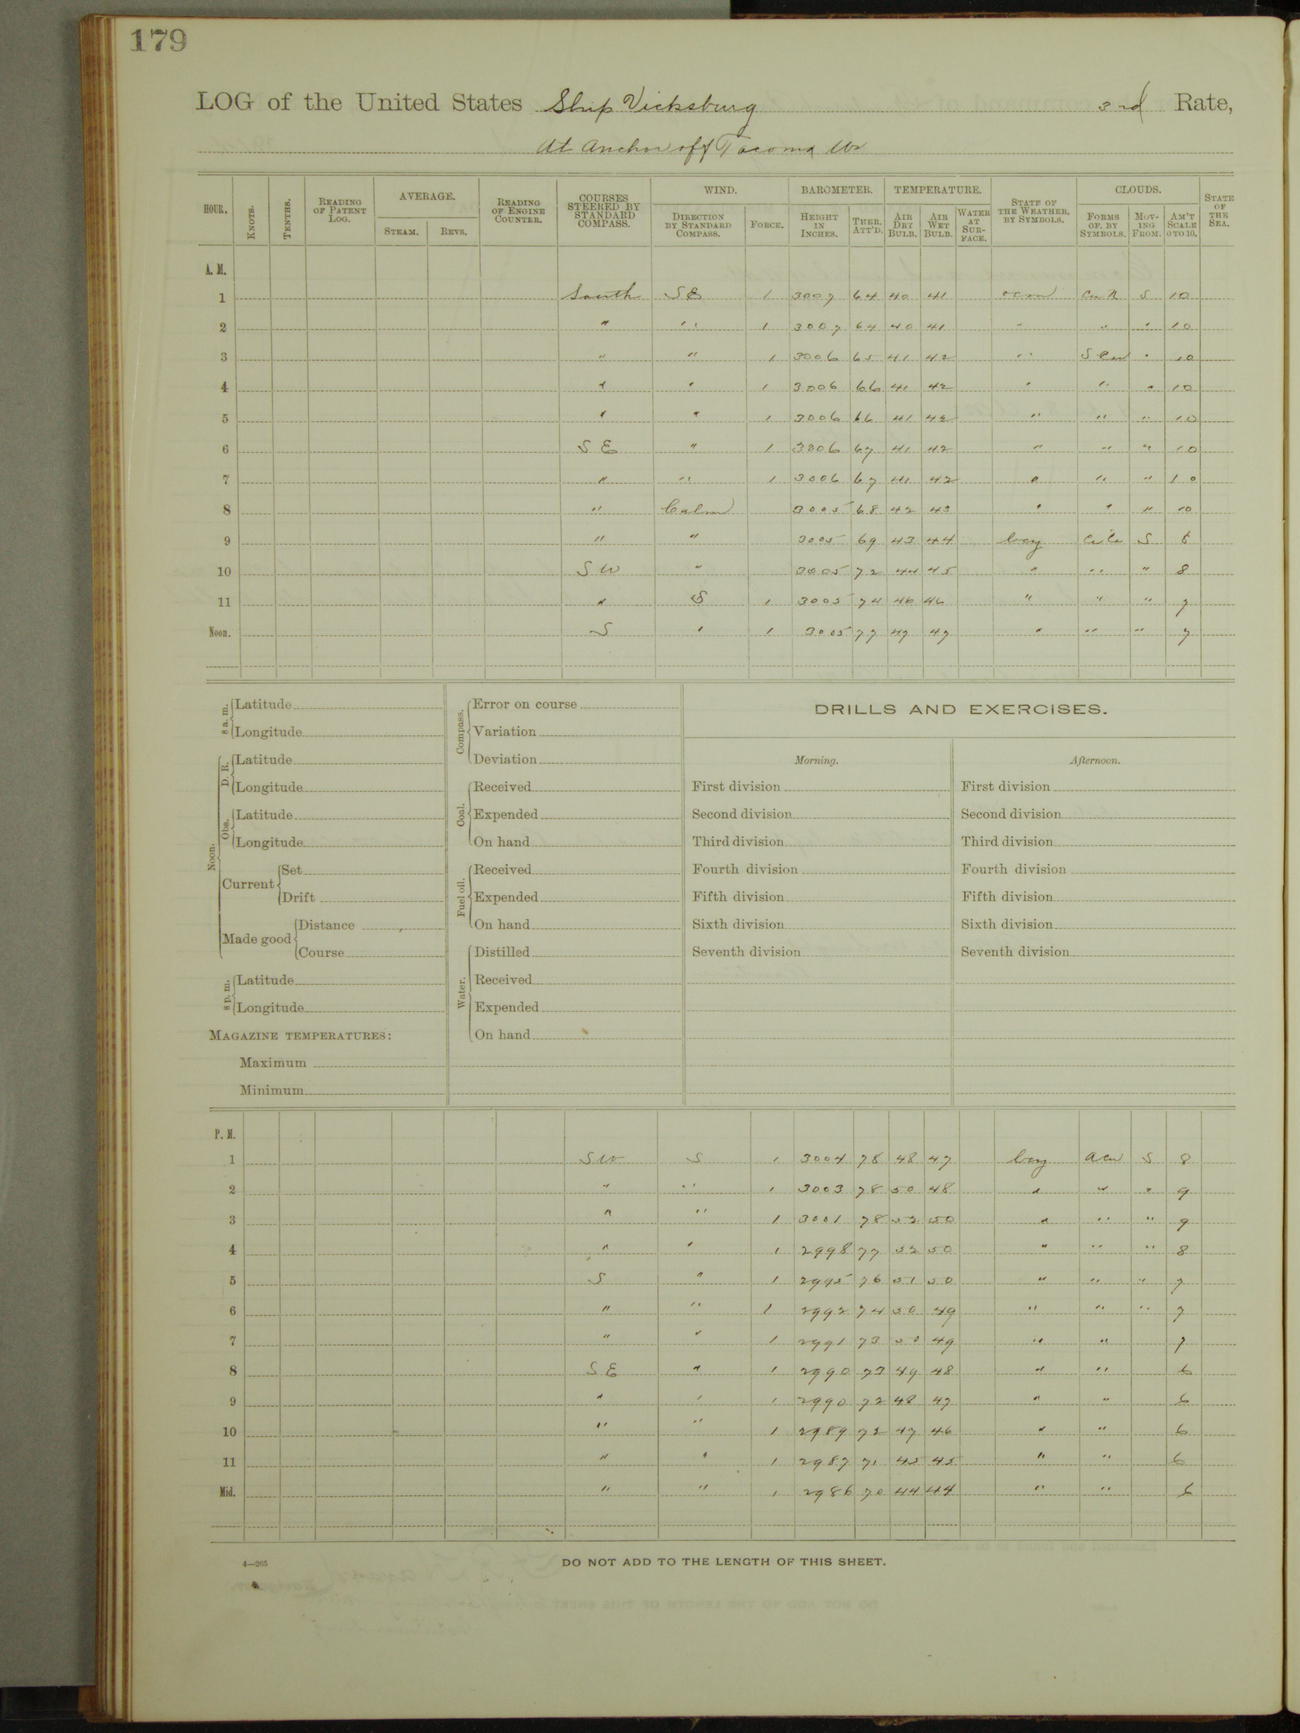 179
LOG of the United States Ship Vicksburg 3rd Rate,
At Anchor off Tacoma Wn
HOUR. KNOTS. TENTHS. READING OF PATENT LOG. AVERAGE. STEAM. REVS. READING OF ENGINE COUNTER. COURSES STEERED BY STANDARD COMPASS. WIND. DIRECTION BY STANDARD COMPASS. FORCE. BAROMETER. HEIGHT IN INCHES. THER. ATT'D. TEMPERATURE. AIR DRY BULB. AIR WET BULB. WATER AT SURFACE. STATE OF THE WEATHER, BY SYMBOLS. CLOUDS. FORMS OF, BY SYMBOLS. MOVING FROM. AM'T SCALE 0 TO 10. STATE OF THE SEA.
A. M.
1 South SE 1 3007 64 40 41 ocm CuN S 10
2 " " 1 3007 64 40 41 " " " 10
3 " " 1 3006 65 41 42 " " 10
4 " " 1 3006 66 41 42 " " " 10
5 " " 1 3006 66 41 42 " " " 10
6 SE " 1 3006 67 41 42 " " " 10
7 " " 1 3006 67 41 42 " " " 10
8 " Calm 3005 68 42 43 " " " 10
9 " " 3005 69 43 44 bcy S 8
10 SW " 3005 72 44 45 " " " 8
11 " S 1 3005 74 46 46 " " " 7
Noon. S " 1 3005 77 47 47 " " " 7
8 a. m. Latitude
Longitude
Noon. D. R. Latitude
Longitude
Obs. Latitude
Longitude
Current Set
Drift
Made good Distance
Course
8 p. m. Latitude
Longitude
MAGAZINE TEMPERATURES:
Maximum
Minimum
Compass. Error on course
Variation
Deviation
Coal. Received
Expended
On hand
Fuel oil. Received
Expended
On hand
Water. Distilled
Received
Expended
On hand
DRILLS AND EXERCISES.
Morning. Afternoon.
First division First division
Second division Second division
Third division Third division
Fourth division Fourth division
Fifth division Fifth division
Sixth division Sixth division
Seventh division Seventh division
P. M.
1 SW S 1 3004 78 48 47 bcy ACu S 8
2 " " 1 3003 78 50 48 " " " 9
3 " " 1 3001 78 52 50 " " " 9
4 " " 1 2998 77 52 50 " " " 8
5 S " 1 2995 76 51 50 " " " 7
6 " " 1 2992 74 50 49 " " " 7
7 " " 1 2991 73 50 49 " " 7
8 SE " 1 2990 73 49 48 " " 6
9 " " 1 2990 72 48 47 " " 6
10 " " 1 2989 72 47 46 " " 6
11 " " 1 2987 71 45 45 " " 6
Mid. " " 1 2986 70 44 44 " " 6
4—265
DO NOT ADD TO THE LENGTH OF THIS SHEET.